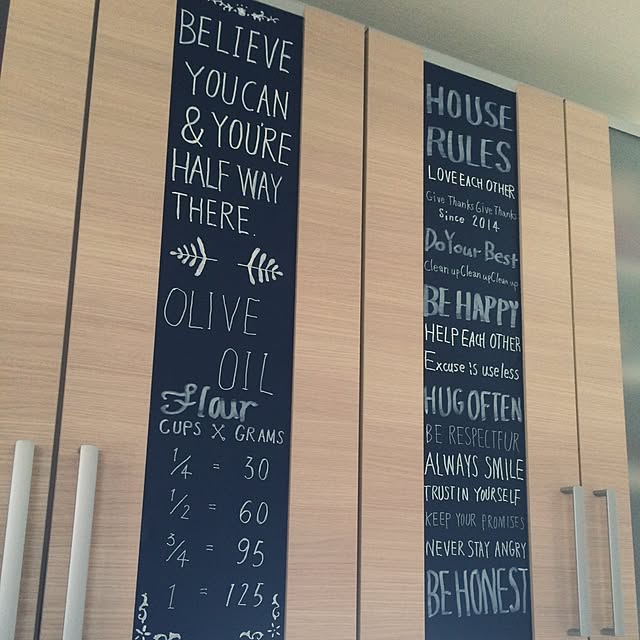 BELIEVE
YOU CAN
& YOU'RE
HALF WAY
THERE.
OLIVE
OIL
Flour
CUPS X GRAMS
1/4 = 30
1/2 = 60
3/4 = 95
1 = 125
HOUSE
RULES
LOVE EACH OTHER
Give Thanks Give Thanks
Since 2014
Do Your Best
Clean up Clean up Clean up
BE HAPPY
HELP EACH OTHER
Excuse is useless
HUG OFTEN
BE RESPECTFUR
ALWAYS SMILE
TRUST IN YOURSELF
KEEP YOUR PROMISES
NEVER STAY ANGRY
BE HONEST